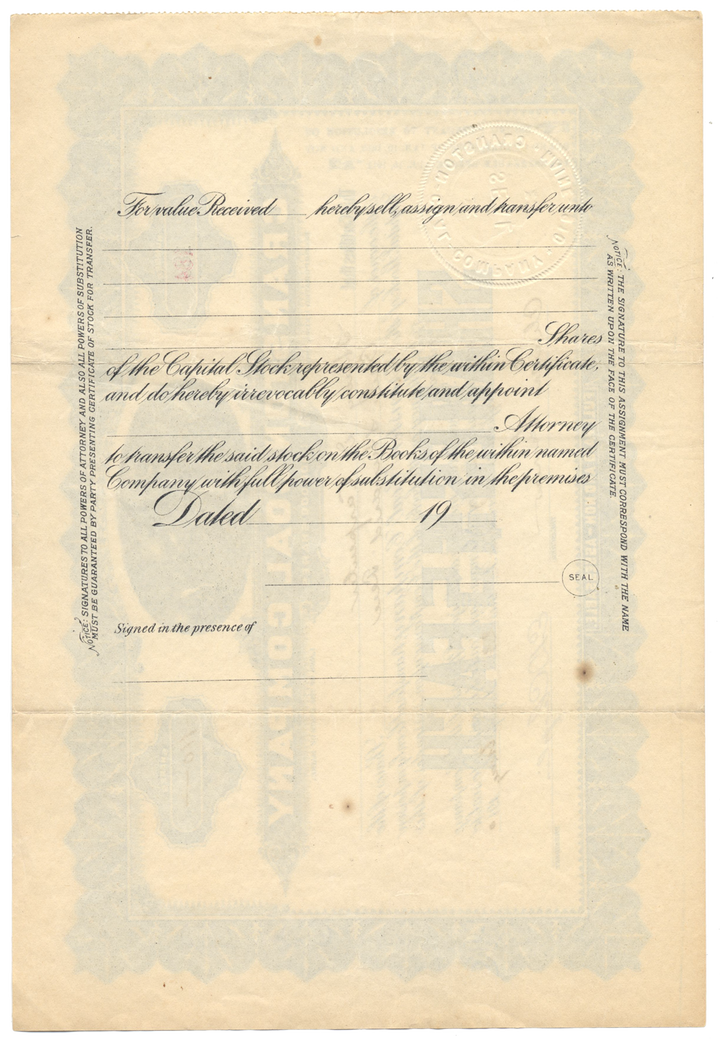 For value Received hereby sell, assign and transfer unto
Shares
of the Capital Stock represented by the within Certificate,
and do hereby irrevocably constitute and appoint
Attorney
to transfer the said stock on the Books of the within named
Company with full power of substitution in the premises
Dated 19
SEAL
Signed in the presence of
NOTICE: SIGNATURES TO ALL POWERS OF ATTORNEY AND ALSO ALL POWERS OF SUBSTITUTION
MUST BE GUARANTEED BY PARTY PRESENTING CERTIFICATE OF STOCK FOR TRANSFER.
NOTICE: THE SIGNATURE TO THIS ASSIGNMENT MUST CORRESPOND WITH THE NAME
AS WRITTEN UPON THE FACE OF THE CERTIFICATE.
CRANSTON
COAL COMPANY